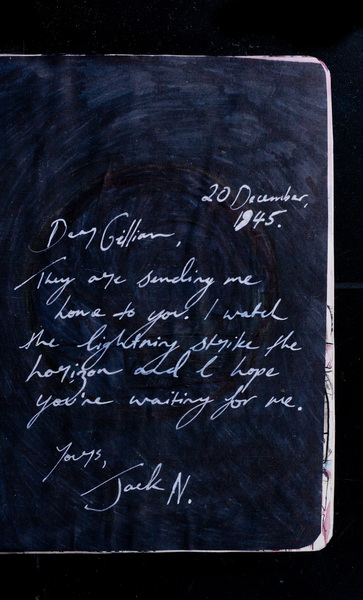 20 December,
1945.
Dear Gillian,
They are sending me
home to you. I watch
the lightning strike the
horizon and I hope
you're waiting for me.
Yours,
Jack N.